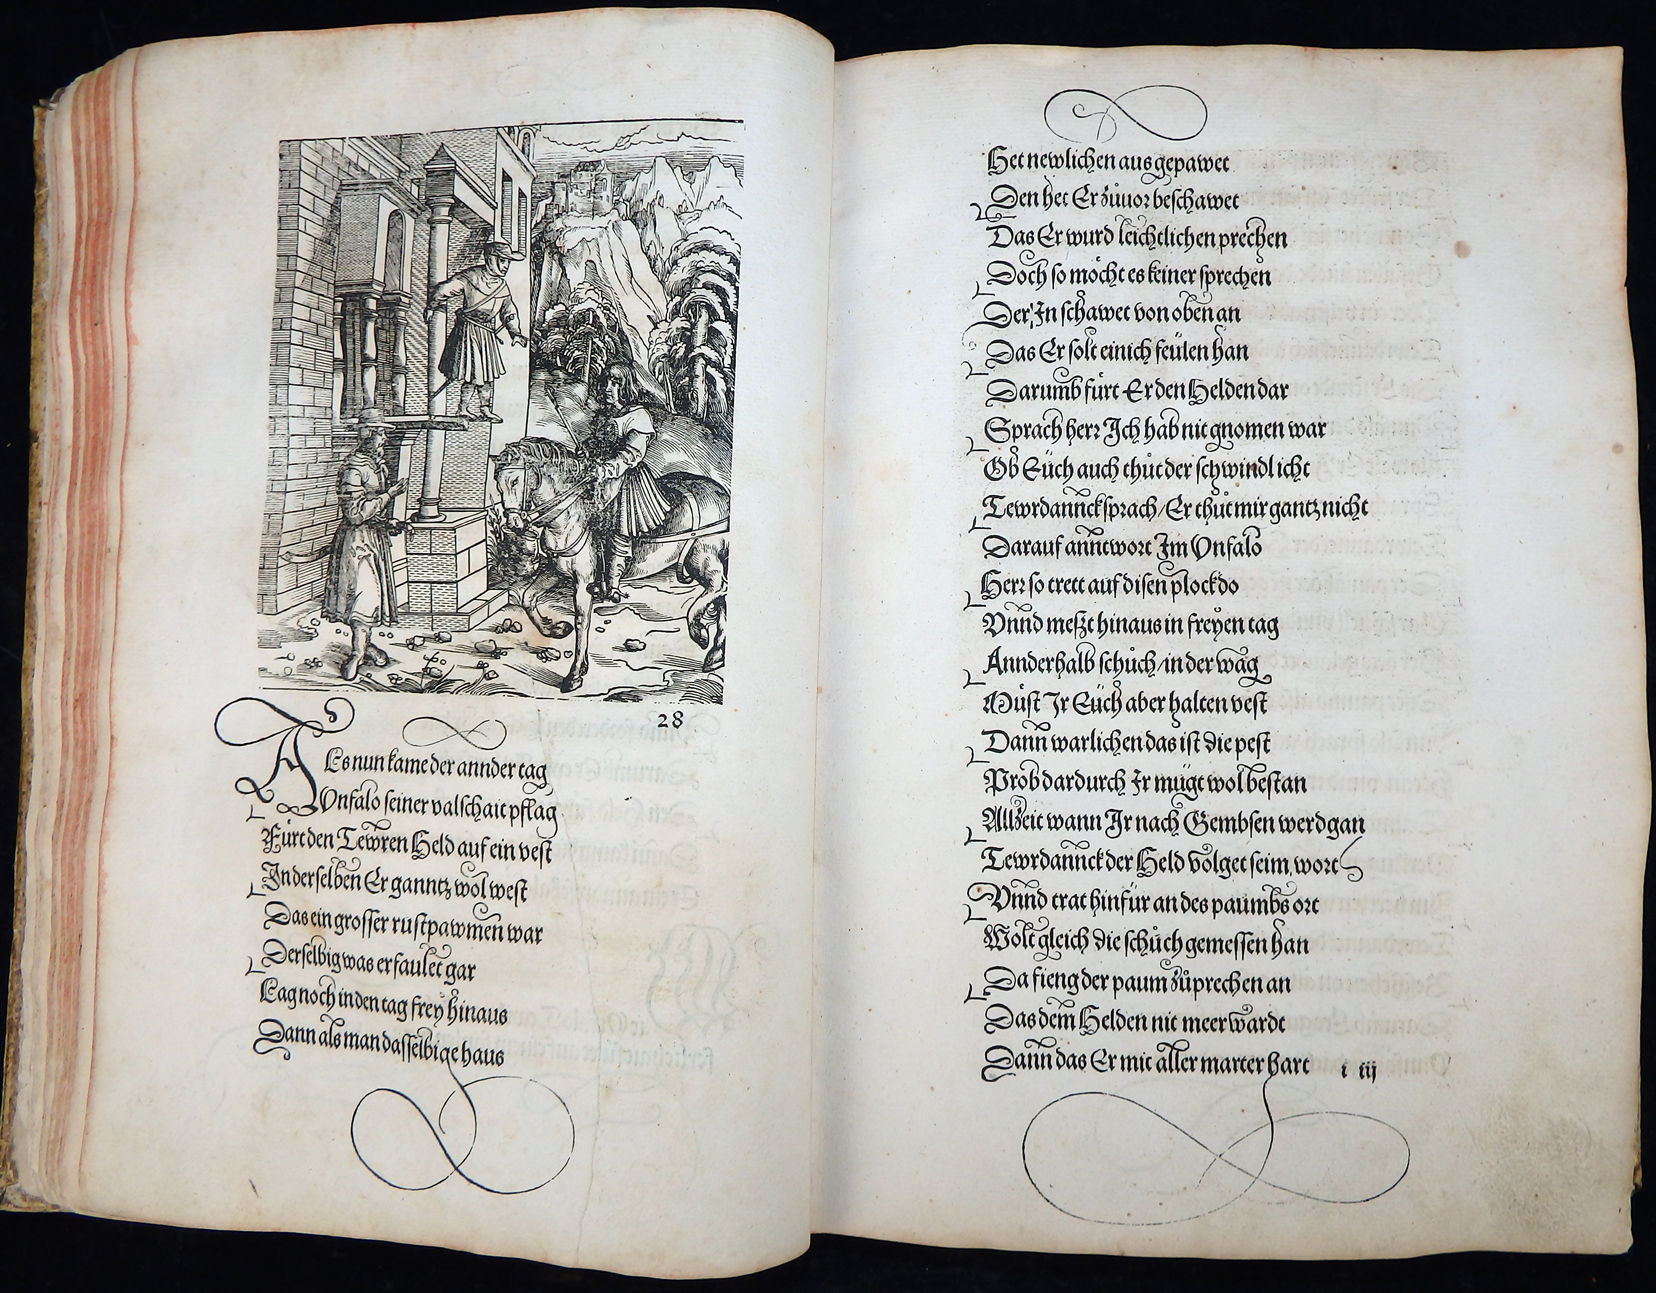 28
Als nun kame der annder tag
Vnfalo seiner valschait pflag
Fürt den Tewren Held auf ein vest
In derselben Er ganntz wol west
Das ein grosser rustpawmen war
Derselbig was erfaulet gar
Lag noch in den tag frey hinaus
Dann als man dasselbige haus
Het newlichen ausgepawet
Den het Er zůuor beschawet
Das Er wurd leichtlichen prechen
Doch so möcht es keiner sprechen
Der In schawet von oben an
Das Er solt einich feülen han
Darumb fürt Er den Helden dar
Sprach herr Ich hab nit gnomen war
Ob Eüch auch thůt der schwindl icht
Tewrdannck sprach / Er thůt mir gantz nicht
Darauf anntwort Im Vnfalo
Herr so trett auf disen plock do
Vnnd meßt hinaus in freyen tag
Annderhalb schůch / in der wag
Müst Ir Eüch aber halten vest
Dann warlichen das ist die pest
Prob dardurch Ir mügt wol bestan
Allzeit wann Ir nach Gembsen werd gan
Tewrdannck der Held volget seim wort
Vnnd trat hinfür an des paumbs ort
Wolt gleich die schůch gemessen han
Da fieng der paum zůprechen an
Das dem Helden nit meer wardt
Dann das Er mit aller marter hart
i iij